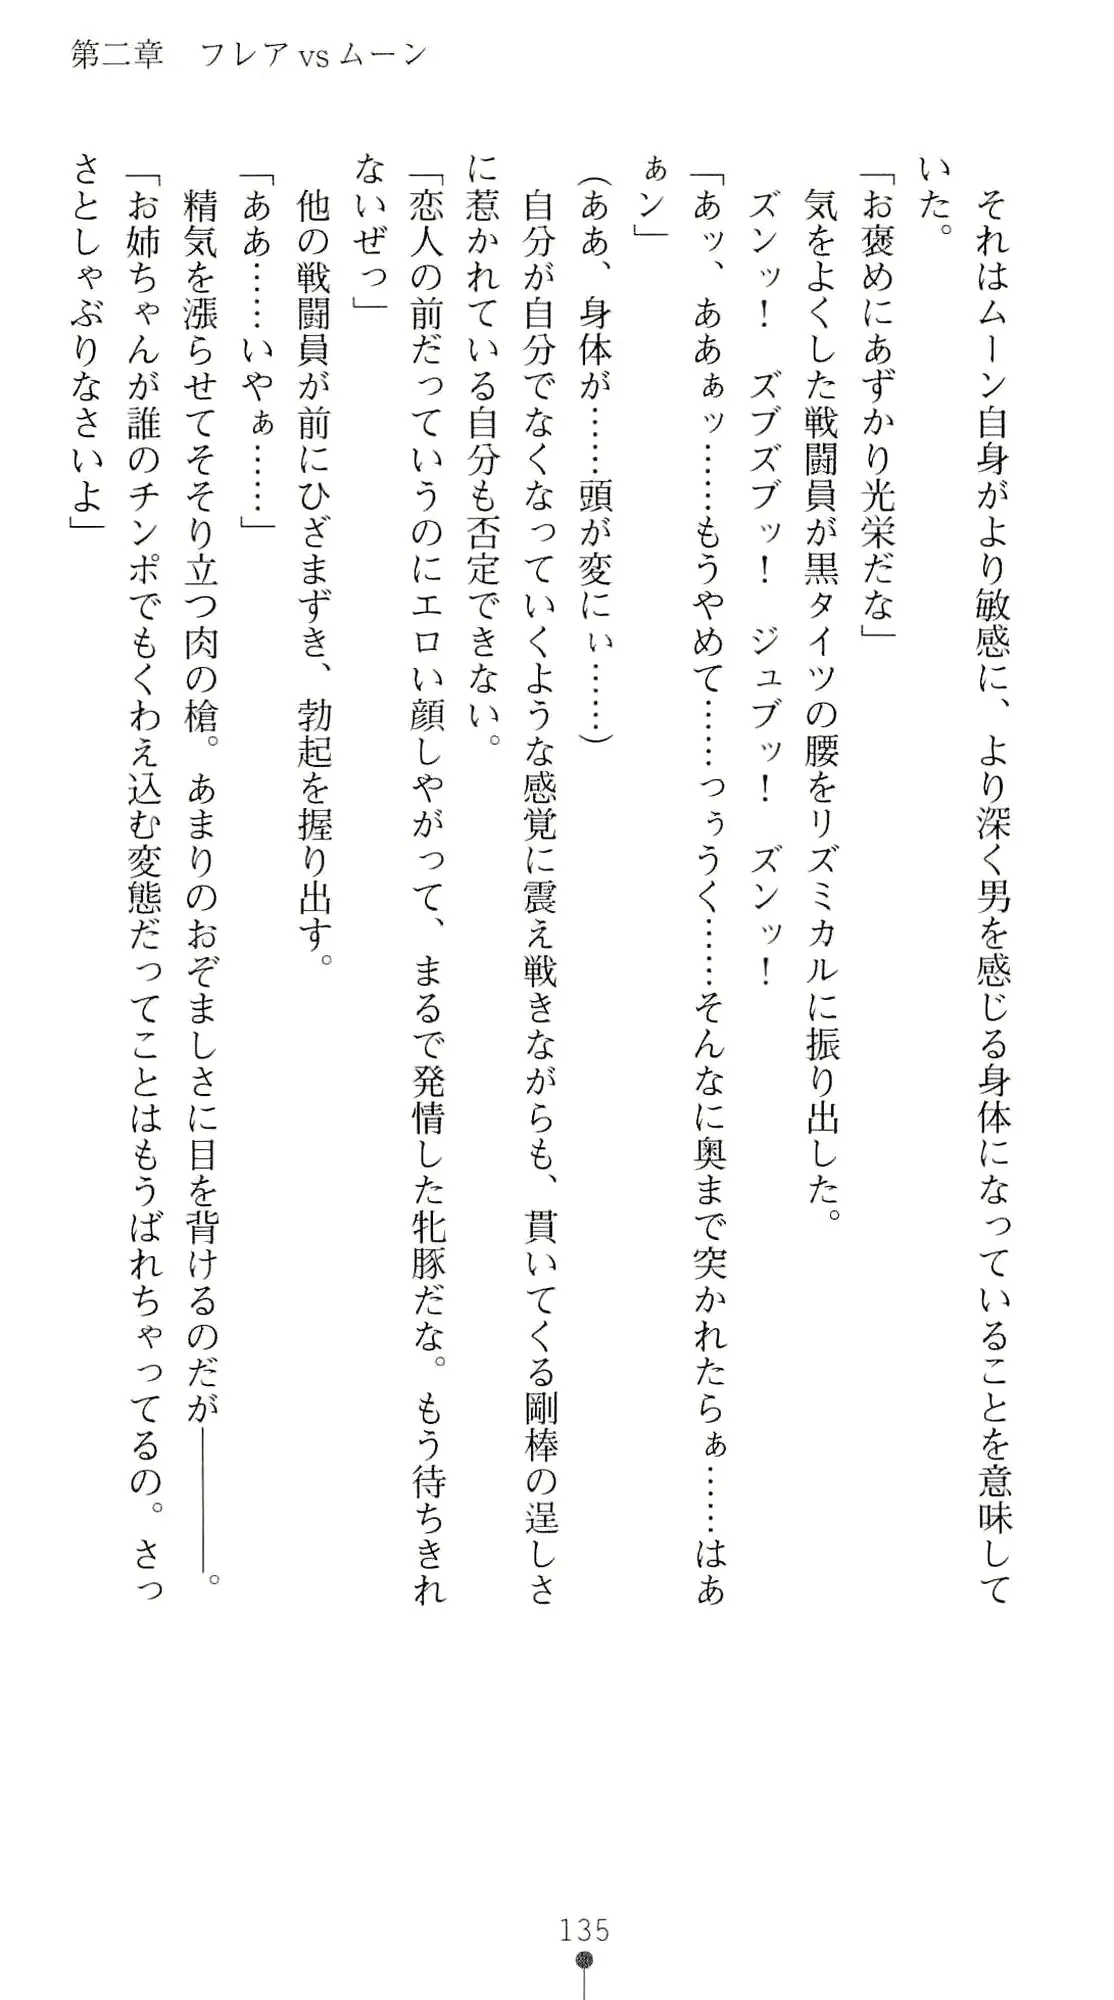 第二章　フレアvsムーン
　それはムーン自身がより敏感に、より深く男を感じる身体になっていることを意味して
いた。
「お褒めにあずかり光栄だな」
　気をよくした戦闘員が黒タイツの腰をリズミカルに振り出した。
　ズンッ！　ズブズブッ！　ジュブッ！　ズンッ！
「あッ、ああぁッ……もうやめて……っぅうく……そんなに奥まで突かれたらぁ……はあ
ぁン」
（ああ、身体が……頭が変にぃ……）
　自分が自分でなくなっていくような感覚に震え戦きながらも、貫いてくる剛棒の逞しさ
に惹かれている自分も否定できない。
「恋人の前だっていうのにエロい顔しやがって、まるで発情した牝豚だな。もう待ちきれ
ないぜっ」
　他の戦闘員が前にひざまずき、勃起を握り出す。
「ああ……いやぁ……」
　精気を漲らせてそそり立つ肉の槍。あまりのおぞましさに目を背けるのだが――――。
「お姉ちゃんが誰のチンポでもくわえ込む変態だってことはもうばれちゃってるの。さっ
さとしゃぶりなさいよ」
135